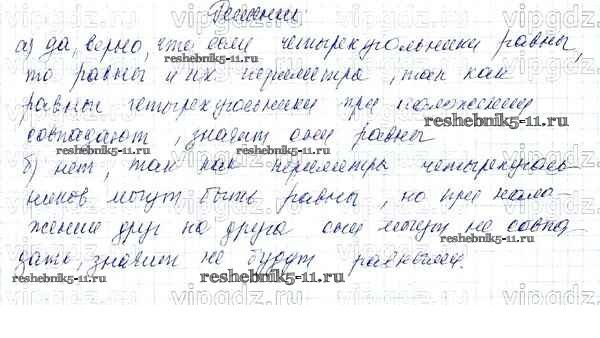 Решение:
а) да, верно, что если четырехугольники равны,
то равны и их периметры, так как
равны четырехугольники при наложении
совпадают, значит они равны
б) нет, так как периметры четырехуголь-
ников могут быть равны, но при нало-
жении друг на друга они могут не совпа-
дать, значит не будут равными.
reshebnik5-11.ru
reshebnik5-11.ru
reshebnik5-11.ru
reshebnik5-11.ru
reshebnik5-11.ru
vipgdz.ru
vipgdz.ru
vipgdz.ru